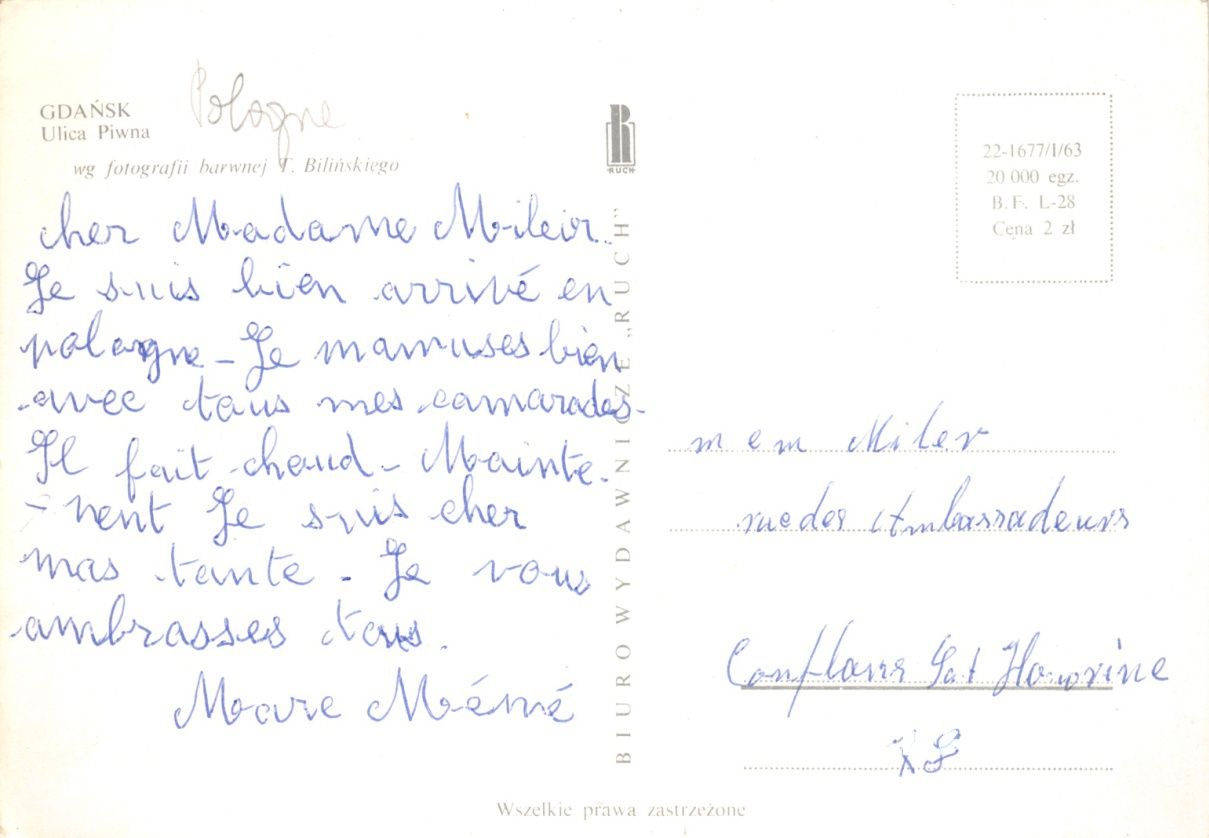 GDAŃSK
Ulica Piwna
Pologne
wg fotografii barwnej T. Bilińskiego
cher Madame Mileir.
Je suis bien arrivé en
pologne - Je mamuses bien
avec tous mes camarades-
Il fait chaud - Mainte-
- nent Je suis cher
mas tante - Je vous
ambrasses tous.
Marc Mémé
RUCH
BIURO WYDAWNICZE „RUCH”
22-1677/I/63
20 000 egz.
B. F. L-28
Cena 2 zł
m e m Miler
rue des Ambassadeurs
Conflans Honorine
Wszelkie prawa zastrzeżone